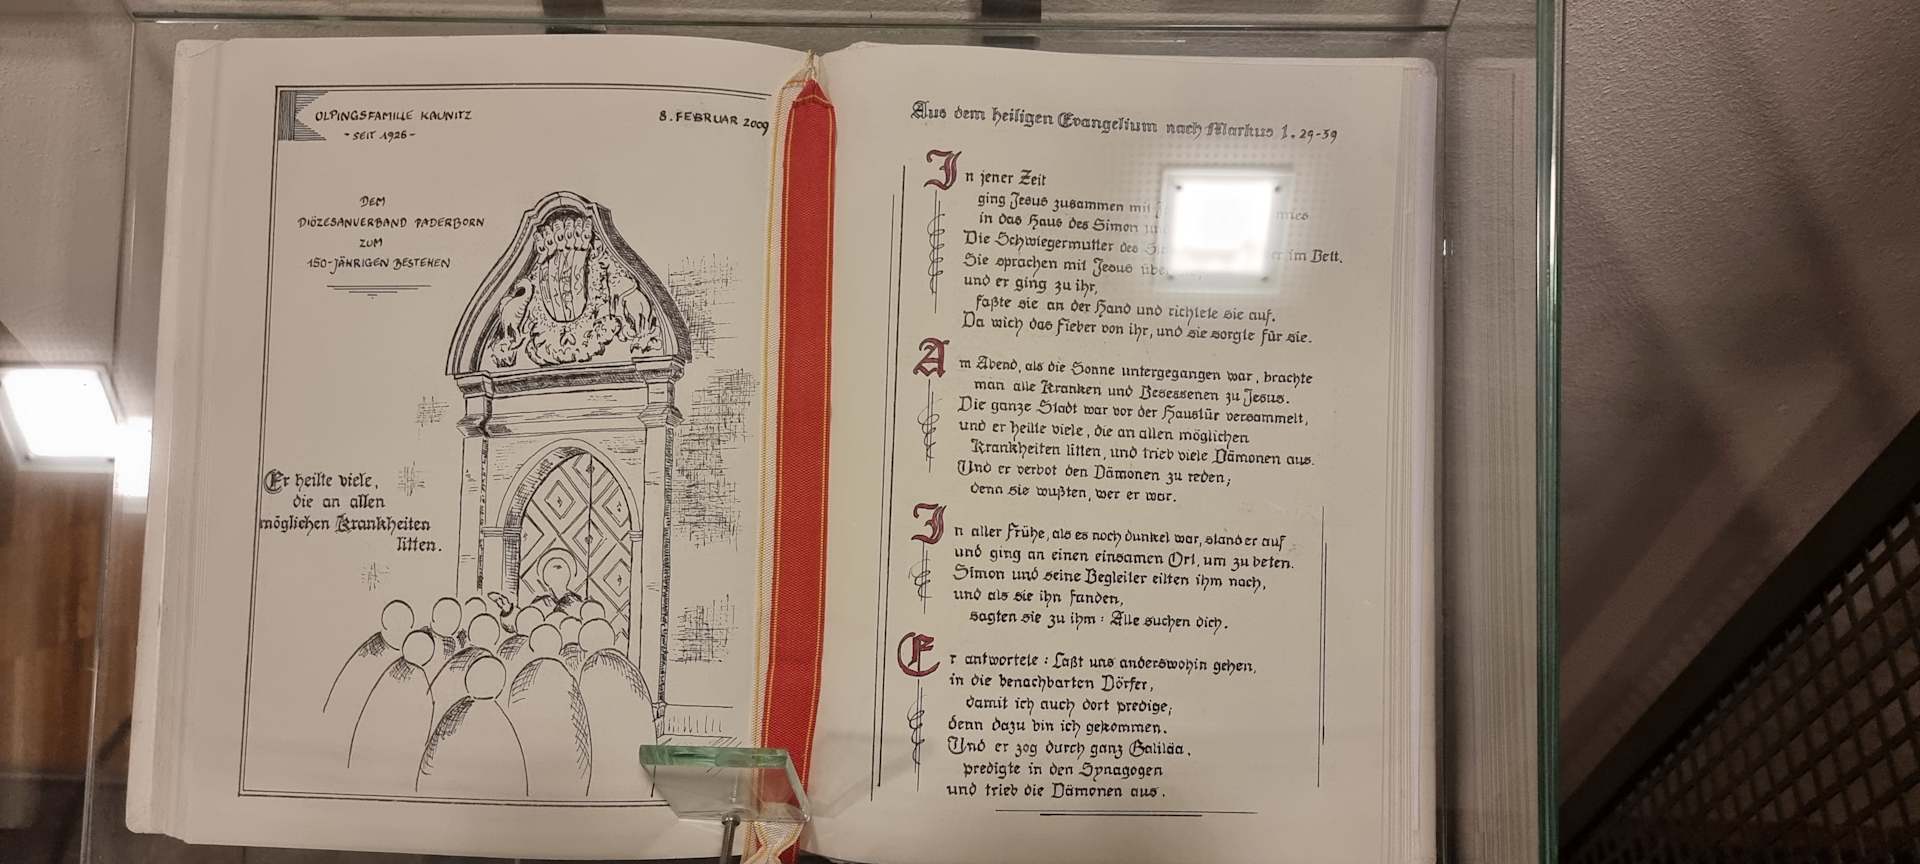 OLPINGSFAMILIE KAUNITZ
- SEIT 1926 -
8. FEBRUAR 2009
DEM
DIÖZESANVERBAND PADERBORN
ZUM
150-JÄHRIGEN BESTEHEN
Er heilte viele,
die an allen
möglichen Krankheiten
litten.
Aus dem heiligen Evangelium nach Markus 1. 29-39
In jener Zeit
ging Jesus zusammen mit
in das Haus des Simon und
Die Schwiegermutter des im Bett.
Sie sprachen mit Jesus
und er ging zu ihr,
faßte sie an der Hand und richtete sie auf.
Da wich das Fieber von ihr, und sie sorgte für sie.
Am Abend, als die Sonne untergegangen war, brachte
man alle Kranken und Besessenen zu Jesus.
Die ganze Stadt war vor der Haustür versammelt,
und er heilte viele, die an allen möglichen
Krankheiten litten, und trieb viele Dämonen aus.
Und er verbot den Dämonen zu reden;
denn sie wußten, wer er war.
In aller Frühe, als es noch dunkel war, stand er auf
und ging an einen einsamen Ort, um zu beten.
Simon und seine Begleiter eilten ihm nach,
und als sie ihn fanden,
sagten sie zu ihm: Alle suchen dich.
Er antwortete: Laßt uns anderswohin gehen,
in die benachbarten Dörfer,
damit ich auch dort predige;
denn dazu bin ich gekommen.
Und er zog durch ganz Galiläa.
predigte in den Synagogen
und trieb die Dämonen aus.